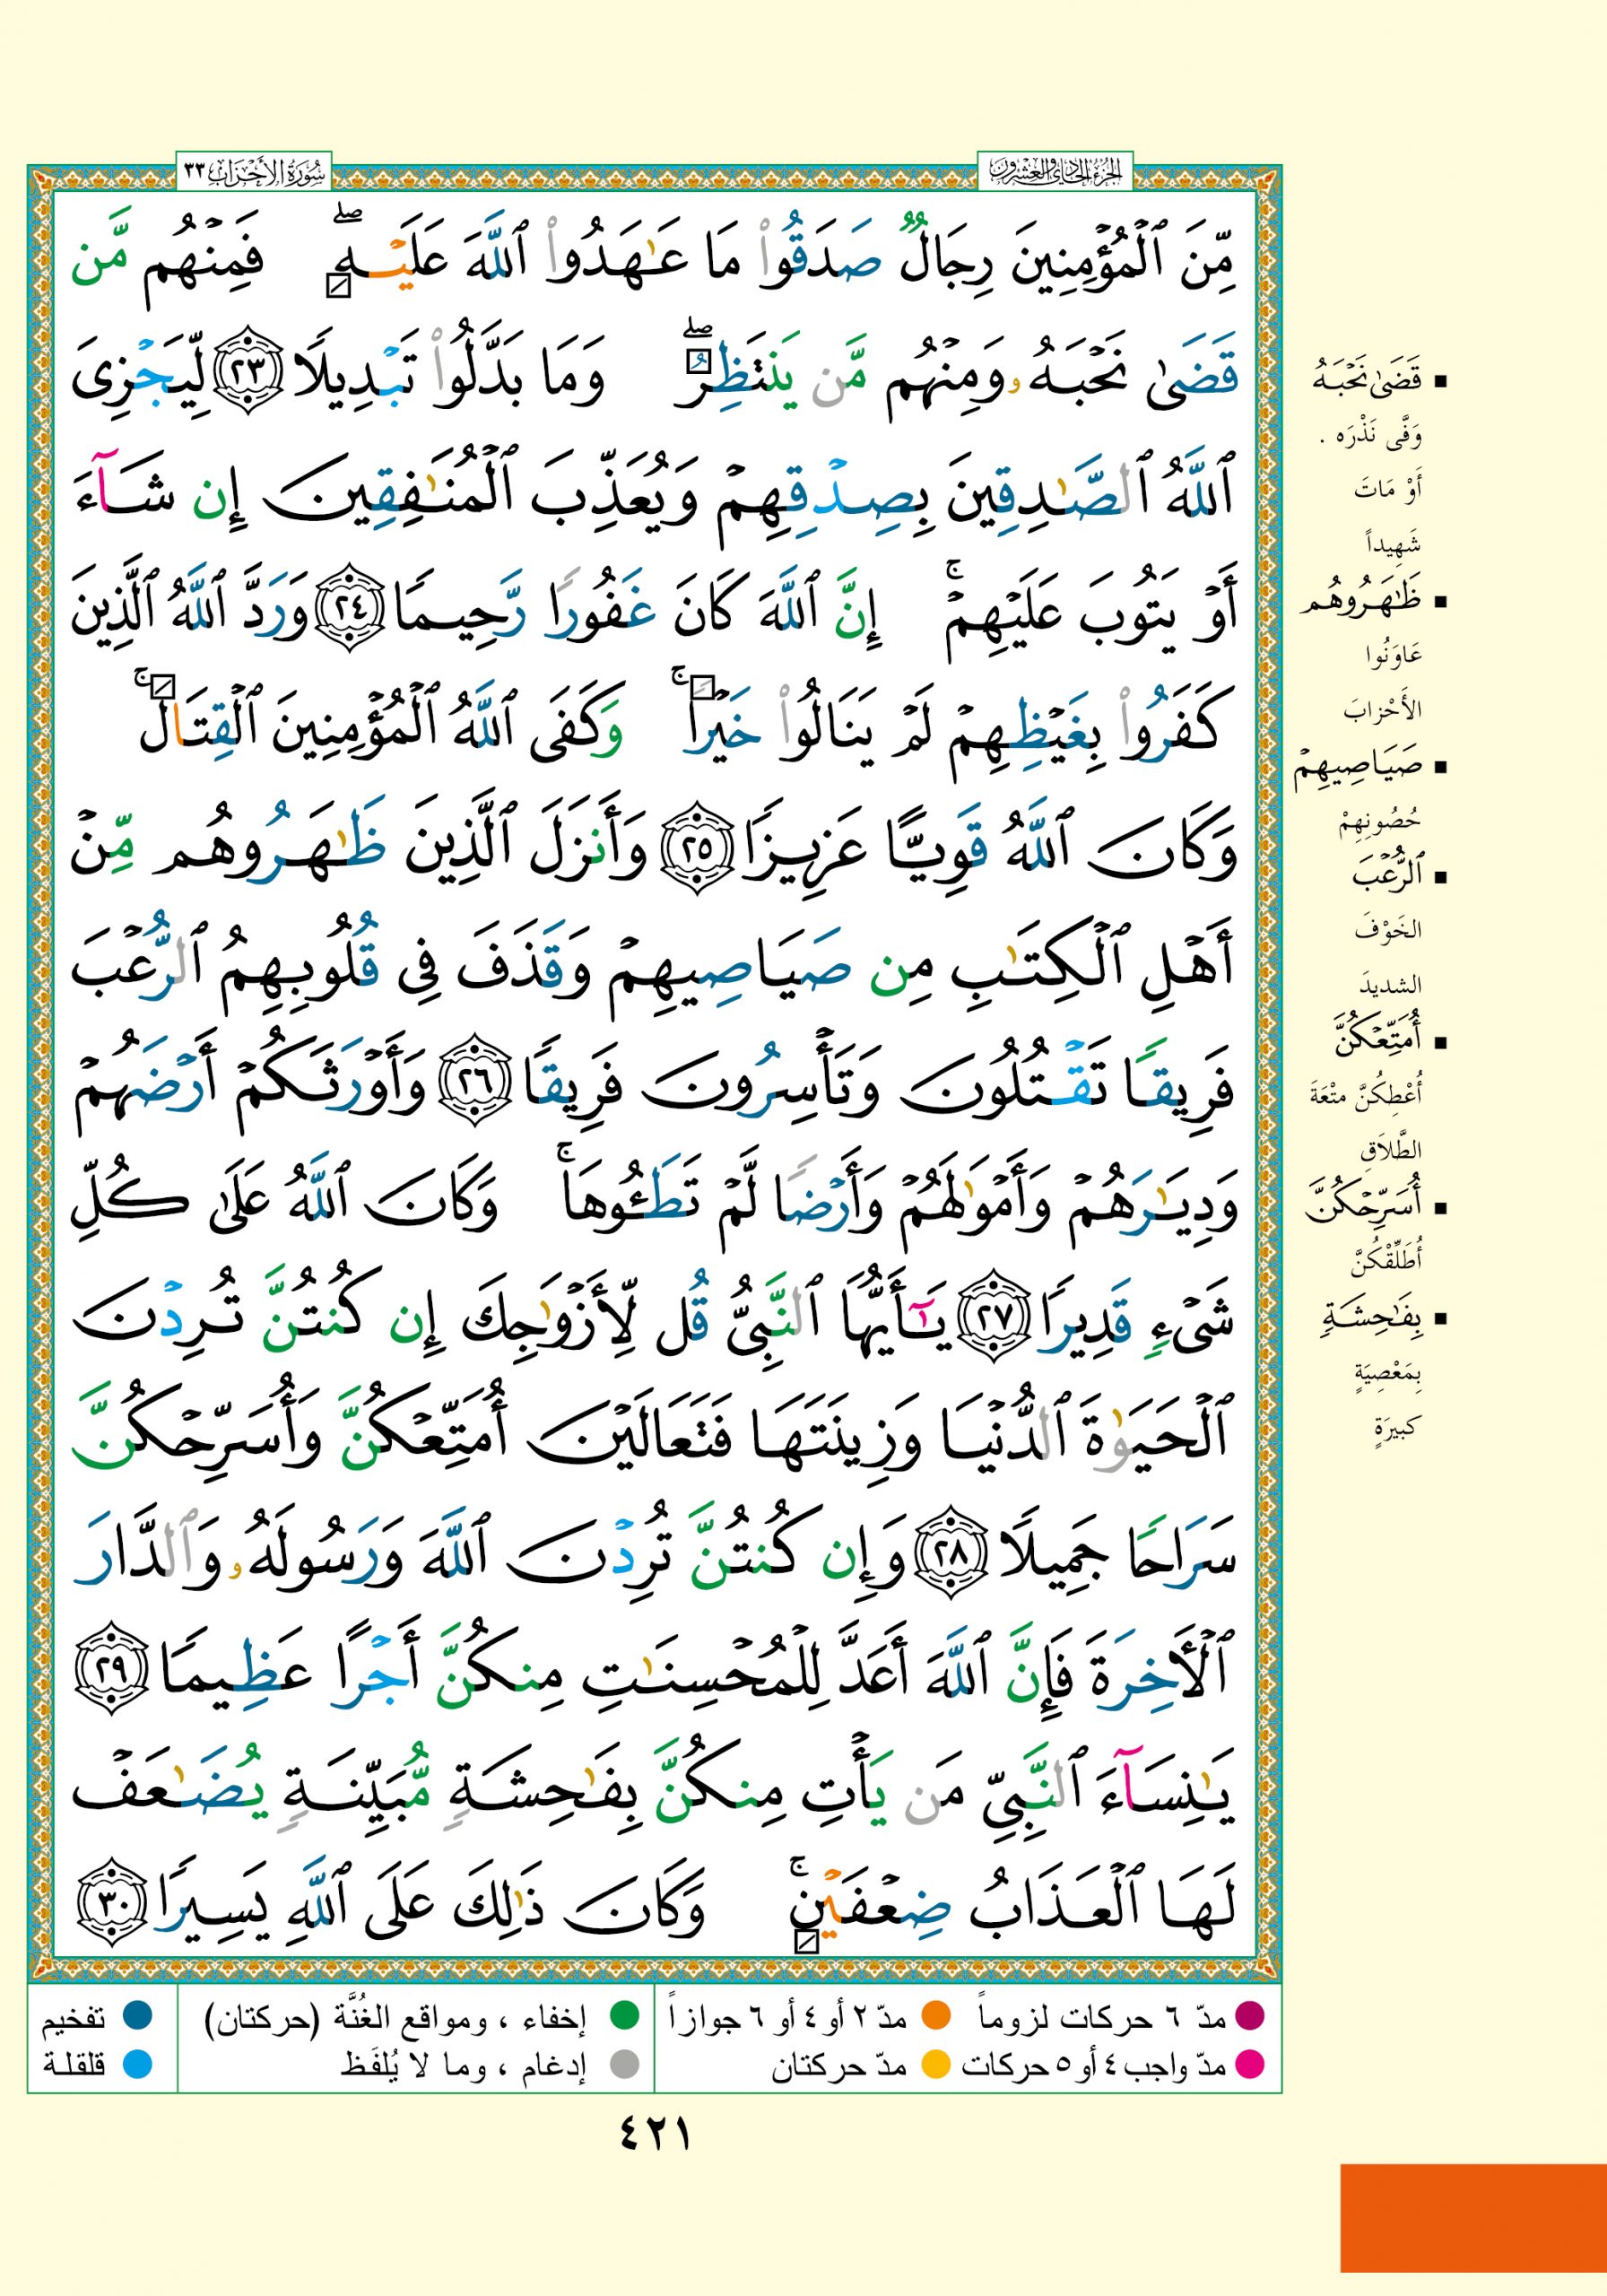 الجزء الحادي والعشرون
سُورَةُ الأَحْزَاب ٣٣
مِّنَ ٱلْمُؤْمِنِينَ رِجَالٌ صَدَقُوا۟ مَا عَٰهَدُوا۟ ٱللَّهَ عَلَيْهِ ۖ فَمِنْهُم مَّن
قَضَىٰ نَحْبَهُۥ وَمِنْهُم مَّن يَنتَظِرُ ۖ وَمَا بَدَّلُوا۟ تَبْدِيلًا ٢٣ لِّيَجْزِىَ
ٱللَّهُ ٱلصَّٰدِقِينَ بِصِدْقِهِمْ وَيُعَذِّبَ ٱلْمُنَٰفِقِينَ إِن شَآءَ
أَوْ يَتُوبَ عَلَيْهِمْ ۚ إِنَّ ٱللَّهَ كَانَ غَفُورًا رَّحِيمًا ٢٤ وَرَدَّ ٱللَّهُ ٱلَّذِينَ
كَفَرُوا۟ بِغَيْظِهِمْ لَمْ يَنَالُوا۟ خَيْرًا ۚ وَكَفَى ٱللَّهُ ٱلْمُؤْمِنِينَ ٱلْقِتَالَ ۚ
وَكَانَ ٱللَّهُ قَوِيًّا عَزِيزًا ٢٥ وَأَنزَلَ ٱلَّذِينَ ظَٰهَرُوهُم مِّنْ
أَهْلِ ٱلْكِتَٰبِ مِن صَيَاصِيهِمْ وَقَذَفَ فِى قُلُوبِهِمُ ٱلرُّعْبَ
فَرِيقًا تَقْتُلُونَ وَتَأْسِرُونَ فَرِيقًا ٢٦ وَأَوْرَثَكُمْ أَرْضَهُمْ
وَدِيَٰرَهُمْ وَأَمْوَٰلَهُمْ وَأَرْضًا لَّمْ تَطَـُٔوهَا ۚ وَكَانَ ٱللَّهُ عَلَىٰ كُلِّ
شَىْءٍ قَدِيرًا ٢٧ يَٰٓأَيُّهَا ٱلنَّبِىُّ قُل لِّأَزْوَٰجِكَ إِن كُنتُنَّ تُرِدْنَ
ٱلْحَيَوٰةَ ٱلدُّنْيَا وَزِينَتَهَا فَتَعَالَيْنَ أُمَتِّعْكُنَّ وَأُسَرِّحْكُنَّ
سَرَاحًا جَمِيلًا ٢٨ وَإِن كُنتُنَّ تُرِدْنَ ٱللَّهَ وَرَسُولَهُۥ وَٱلدَّارَ
ٱلْأَخِرَةَ فَإِنَّ ٱللَّهَ أَعَدَّ لِلْمُحْسِنَٰتِ مِنكُنَّ أَجْرًا عَظِيمًا ٢٩
يَٰنِسَآءَ ٱلنَّبِىِّ مَن يَأْتِ مِنكُنَّ بِفَٰحِشَةٍ مُّبَيِّنَةٍ يُضَٰعَفْ
لَهَا ٱلْعَذَابُ ضِعْفَيْنِ ۚ وَكَانَ ذَٰلِكَ عَلَى ٱللَّهِ يَسِيرًا ٣٠
▪ قَضَىٰ نَحْبَهُ
وَفَّى نَذْرَه .
أَوْ مَاتَ
شَهِيداً
▪ ظَٰهَرُوهُم
عَاوَنُوا
الأَحْزابَ
▪ صَيَاصِيهِمْ
حُصُونِهِمْ
▪ ٱلرُّعْبَ
الخَوْفَ
الشديدَ
▪ أُمَتِّعْكُنَّ
أُعْطِكُنَّ متْعَةَ
الطَّلاَقِ
▪ أُسَرِّحْكُنَّ
أُطَلِّقْكُنَّ
▪ بِفَٰحِشَةٍ
بِمَعْصِيَةٍ
كبيرَةٍ
مدّ ٦ حركات لزوماً مدّ ٢ أو ٤ أو ٦ جوازاً إخفاء ، ومواقع الغُنَّة (حركتان) تفخيم
مدّ واجب ٤ أو ٥ حركات مدّ حركتان إدغام ، وما لا يُلفَظ قلقلة
٤٢١